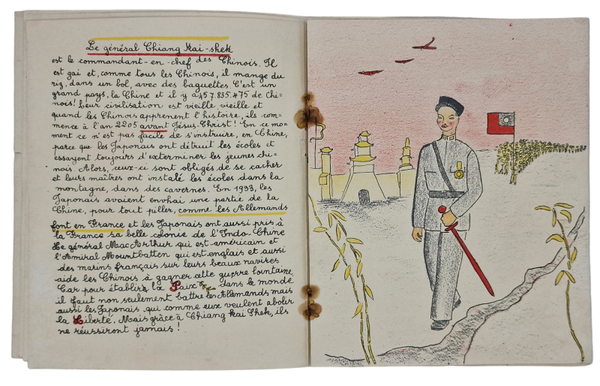 Le général Chiang Kai-shek
est le commandant-en-chef des Chinois. Il
est gai et, comme tous les Chinois, il mange du
riz, dans un bol, avec des baguettes C'est un
grand pays, la Chine et il y a 457.835.475 de Chi-
nois! Leur civilisation est vieille vieille et
quand les Chinois apprennent l'histoire, ils com-
mence à l'an 2205 avant Jésus Christ! En ce mo-
ment ce n'est pas facile de s'instruire, en Chine,
parce que les Japonais ont détruit les écoles et
essayent toujours d'exterminer les jeunes chi-
nois Alors, ceux-ci sont obligés de se cacher
et leurs maîtres ont installé les écoles dans la
montagne, dans des cavernes. En 1938, les
Japonais avaient envahi une partie de la
Chine, pour tout piller, comme les Allemands
font en France et les Japonais ont aussi pris à
la France sa belle colonie de l'Indo-Chine
Le général Mac Arthur qui est américain et
l'Amiral Mountbatten qui est anglais et aussi
des marins français sur leurs beaux navires
aide les Chinois à gagner cette guerre lointaine
Car pour établir la Paix dans le monde
il faut non seulement battre les Allemands mais
aussi les Japonais qui comme eux veulent abolir
la Liberté. Mais grâce à Chiang Kai Shek, ils
ne réussiront jamais!